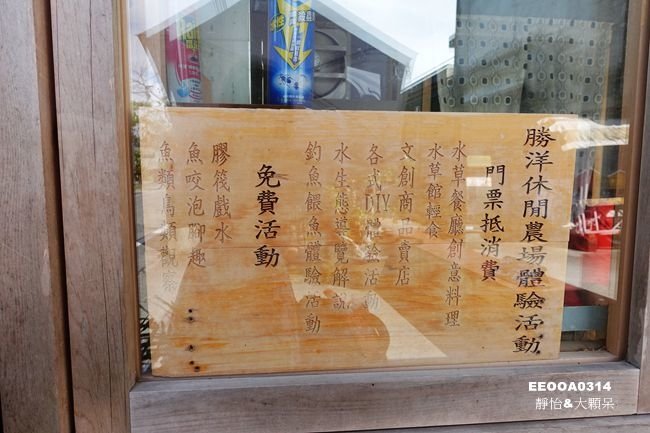 勝洋休閒農場體驗活動
門票抵消費
水草餐廳創意料理
水草館輕食
文創商品賣店
各式DIY體驗活動
水生態導覽解說
釣魚餵魚體驗活動
免費活動
膠筏戲水
魚咬泡腳趣
魚類鳥類觀察
EEOOA0314
靜怡&大顆呆